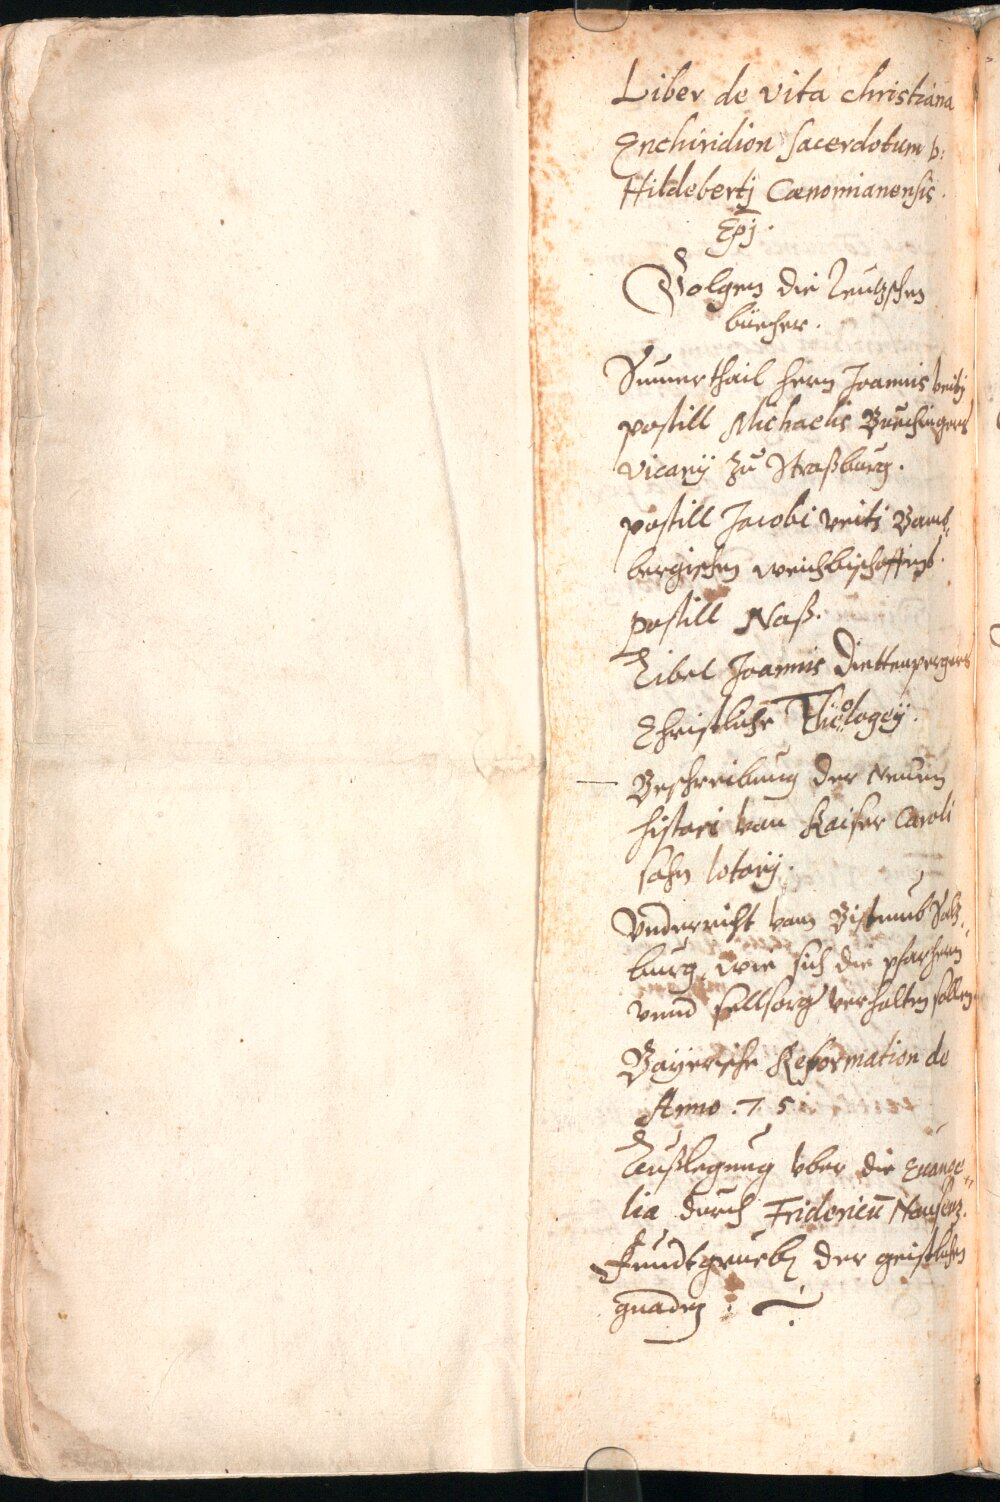 Liber de vita christiana
Enchiridion sacerdotum b:
Hildebertj Cænomianensis.
Epj.
Volgen die Teutzschen
büecher.
Sumerthail hern Joannis
postill Michaelis Buechingers
vicarÿ zu Straßburg.
postill Jacobi veits Bam-
bergischen weichbischoffens.
postill Naß.
Bibel Joannis Diettenpergers
Christliche Theologeÿ.
Beschreibung der Neuen
histori von Kaiser Caroli
sohn lotarÿ.
Vnderricht vom Bistumb Saltz-
burg, wie sich die pfarhern
vnnd sellsorg verhalten sollen
Bayerische Reformation de
Anno .7 5
Außlegung vber die Euange-
lia durch Fridericū Nausenz.
Fundtgrueb der geistlichen
gnaden :